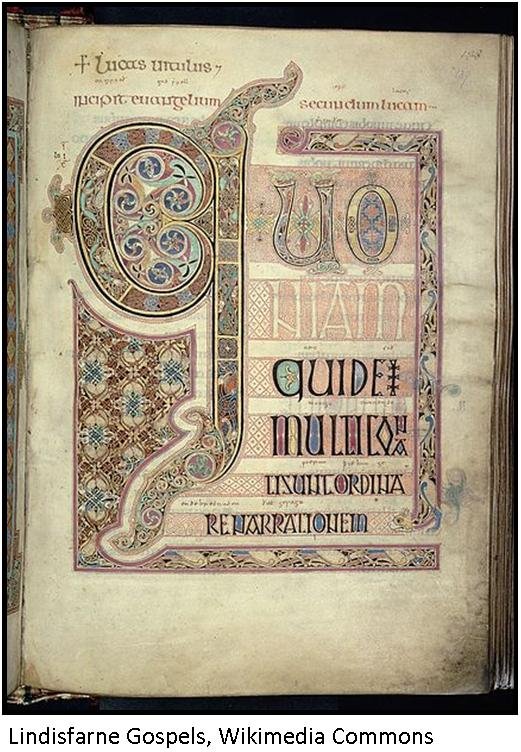 + lucas uitulus
incipit euangelium secundum lucam
QUO
NIAM
QUIDEM
MULTI CONA
TI SUNT ORDINA
RE NARRATIONEM
Lindisfarne Gospels, Wikimedia Commons